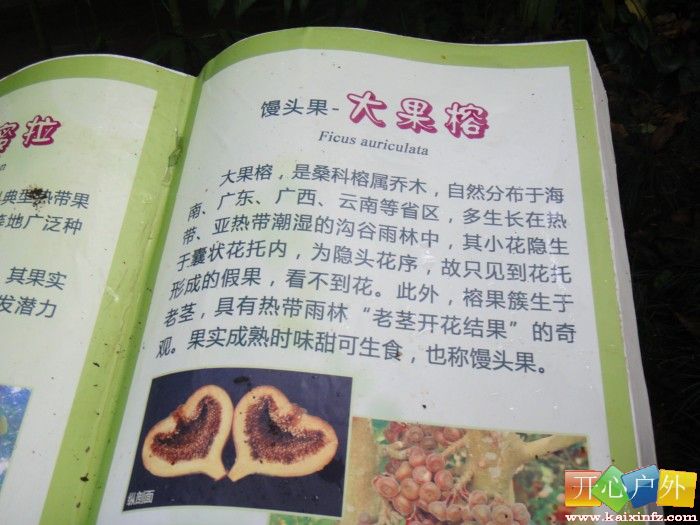 蜜拉
典型热带果
等地广泛种
其果实
发潜力
馒头果-大果榕
Ficus auriculata
大果榕，是桑科榕属乔木，自然分布于海
南、广东、广西、云南等省区，多生长在热
带、亚热带潮湿的沟谷雨林中，其小花隐生
于囊状花托内，为隐头花序，故只见到花托
形成的假果，看不到花。此外，榕果簇生于
老茎，具有热带雨林“老茎开花结果”的奇
观。果实成熟时味甜可生食，也称馒头果。
纵剖面
开心户外
www.kaixinfz.com